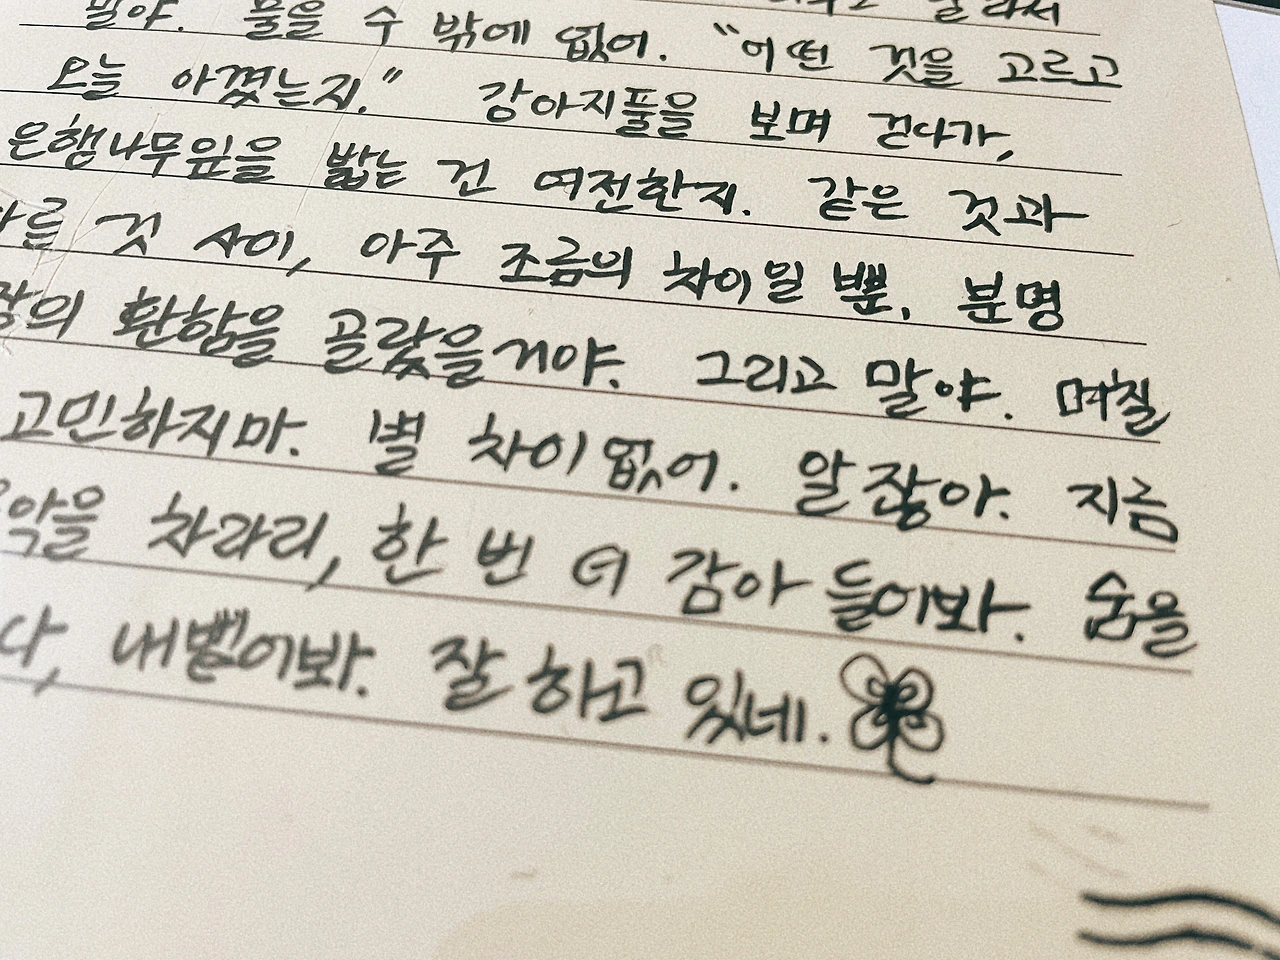 말야. 물을 수 밖에 없어. "어떤 것을 고르고
오늘 아꼈는지." 강아지풀을 보며 걷다가,
은행나무잎을 밟는 건 여전한지. 같은 것과
다른 것 사이, 아주 조금의 차이일 뿐, 분명
환함을 골랐을거야. 그리고 말야. 며칠
고민하지마. 별 차이없어. 알잖아. 지금
차라리, 한 번 더 감아 들어봐. 숨을
내뱉어봐. 잘하고 있네.